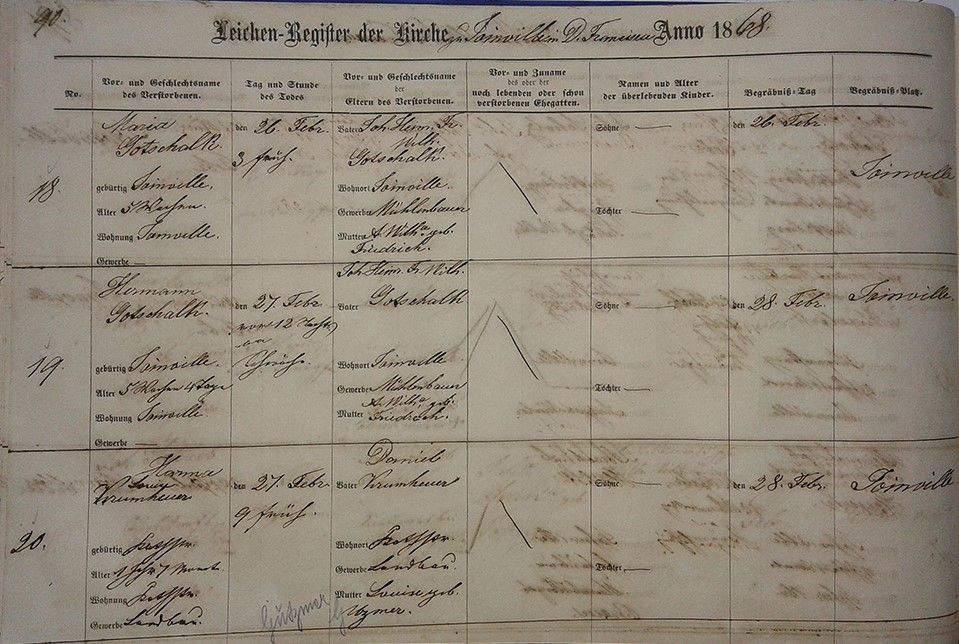 90.
Leichen-Register der Kirche zu Joinville in D. Francisca Anno 1868.
No.
Vor- und Geschlechtsname
des Verstorbenen.
Tag und Stunde
des Todes
Vor- und Geschlechtsname
der
Eltern des Verstorbenen.
Vor- und Zuname
des oder der
noch lebenden oder schon
verstorbenen Ehegatten.
Namen und Alter
der überlebenden Kinder.
Begräbniß-Tag
Begräbniß-Platz.
18.
Maria
Gotschalk.
gebürtig Joinville.
Alter 5 Wochen.
Wohnung Joinville.
Gewerbe —
den 26. Febr.
3 früh.
Vater Joh. Herm. Fr.
Wilh.
Gotschalk.
Wohnort Joinville.
Gewerbe Mühlenbauer
Mutter A. Wilh. geb.
Friedrich.
Söhne —
Töchter —
den 26. Febr.
Joinville
19.
Hermann
Gotschalk.
gebürtig Joinville.
Alter 5 Wochen 4 Tage
Wohnung Joinville
Gewerbe —
den 27. Febr
vor 12 Nachts
an
Schwäche.
Joh. Herm. Fr. Wilh.
Vater Gotschalk
Wohnort Joinville
Gewerbe Mühlenbauer
A. Wilh. geb.
Mutter Friedrich.
Söhne —
Töchter —
den 28. Febr.
Joinville.
20.
Hanna
Krumheuer
gebürtig
Alter 1 Jahr 7 Monate
Wohnung
Gewerbe Landbau.
den 27. Febr.
9 früh.
Daniel
Vater Krumheuer
Wohnort
Gewerbe Landbau.
Mutter Louise geb.
Söhne —
Töchter —
den 28. Febr.
Joinville
Gützmer